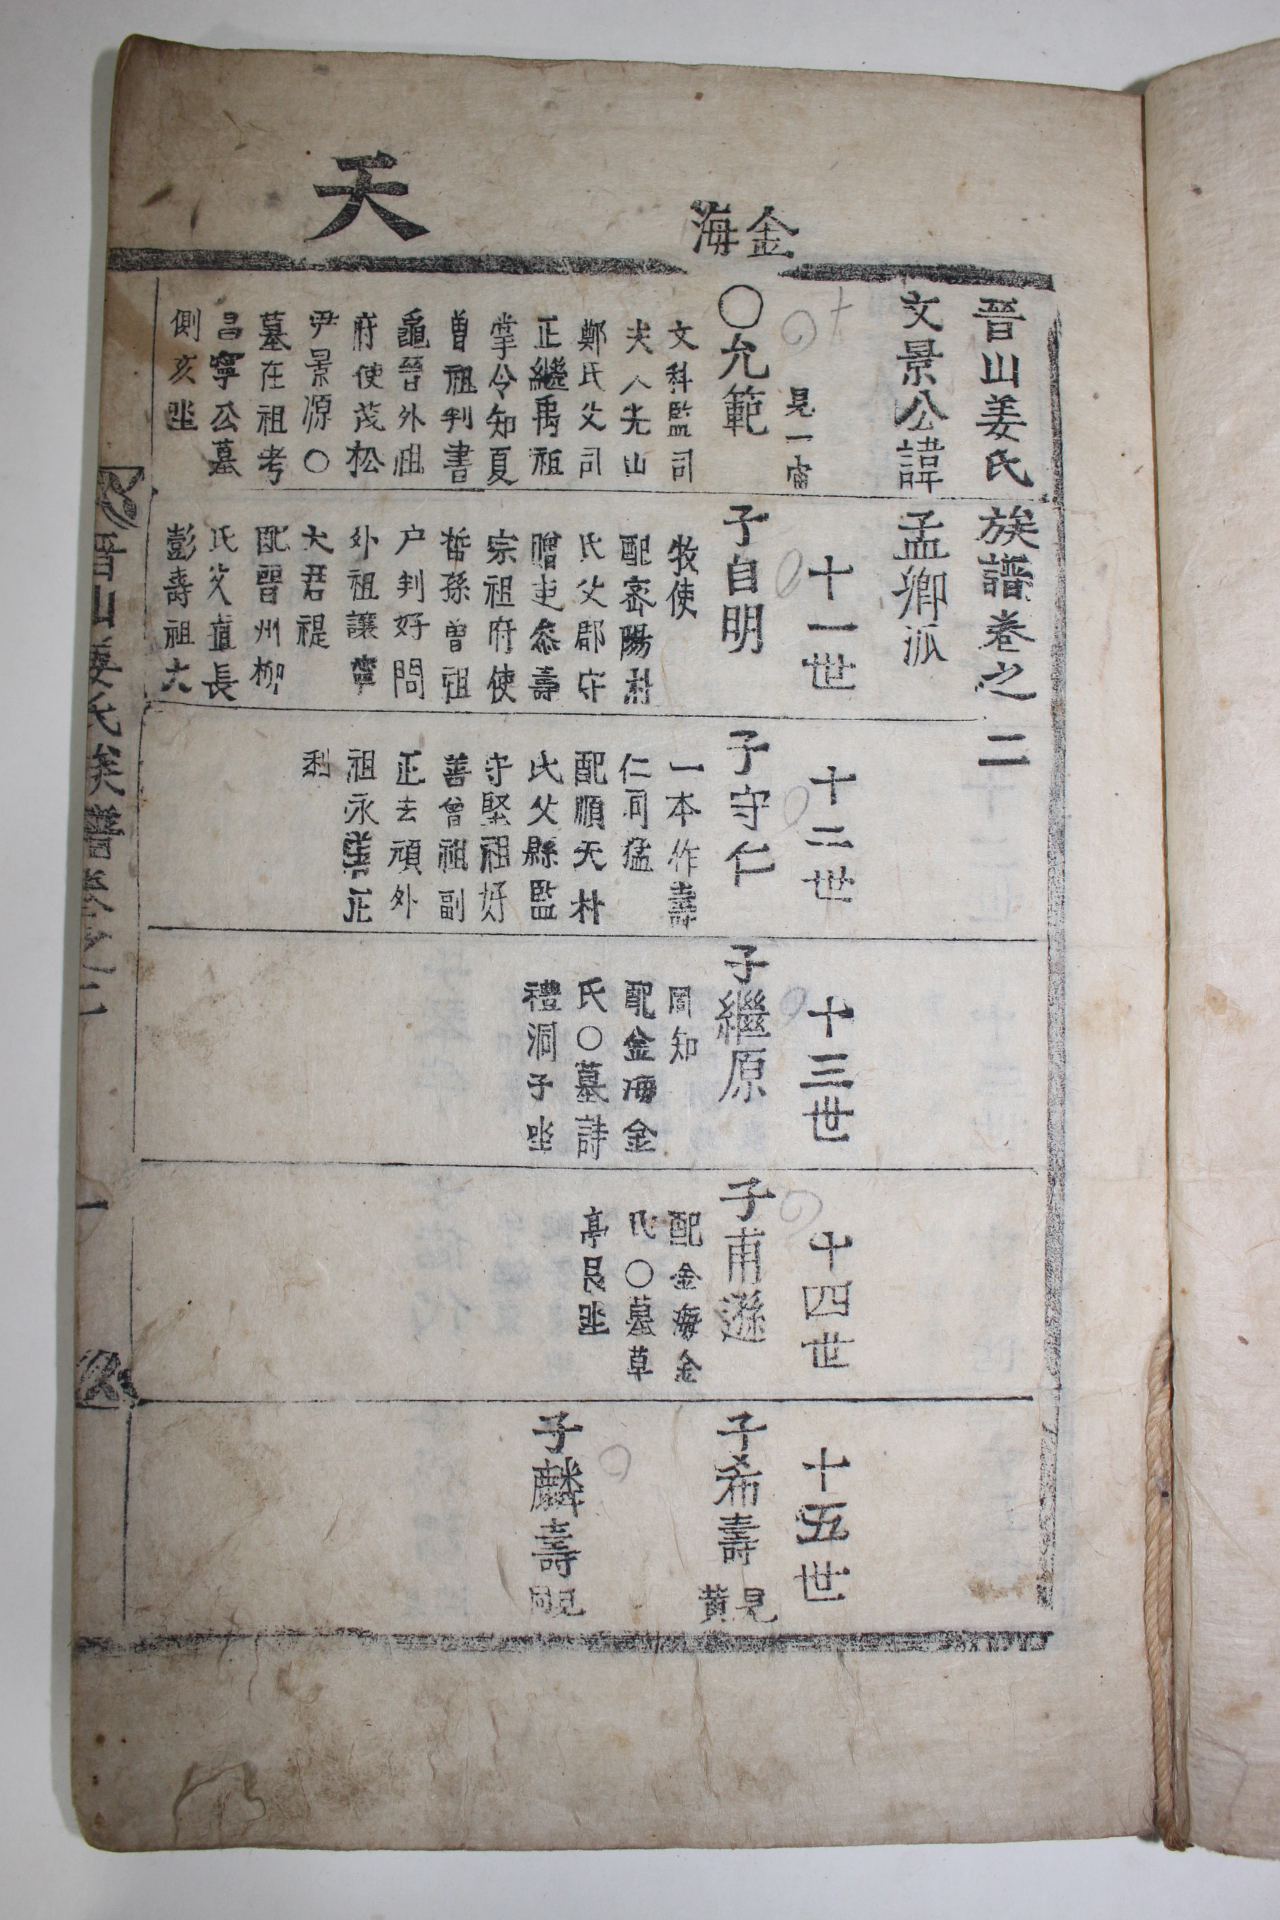 天
金海
晋山姜氏族譜卷之二
文景公諱孟卿派
見一宙
〇允範
文科監司
夫人光山
鄭氏父司
正繼禹祖
掌令知夏
曽祖判書
龜晉外祖
府使茂松
尹景源〇
墓在祖考
昌寧公墓
側亥坐
十一世
子自明
牧使
配密陽朴
氏父郡守
贈吏叅壽
宗祖府使
哲孫曽祖
户判好問
外祖讓寧
大君禔
配晋州柳
氏父直長
彭壽祖大
十二世
子守仁
一本作壽
仁同猛
配順天朴
氏父縣監
守堅祖好
善曾祖副
正去頑外
祖永川正
十三世
子繼原
同知
配金海金
氏〇墓詩
禮洞子坐
十四世
子甫遜
配金海金
氏〇墓草
亭艮坐
十五世
子希壽
見黄
子麟壽
見
晋山姜氏族譜卷之二
一